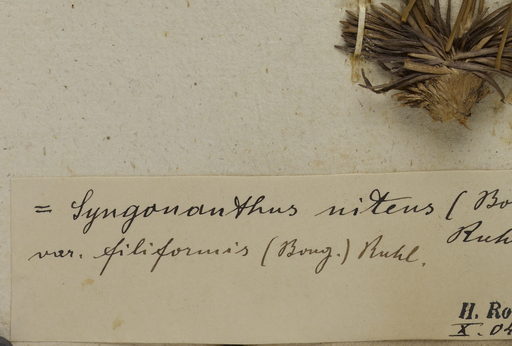 = Syngonanthus nitens (Bo
Ruh
var. filiformis (Bong.) Ruhl.
H. Ro
X. 04